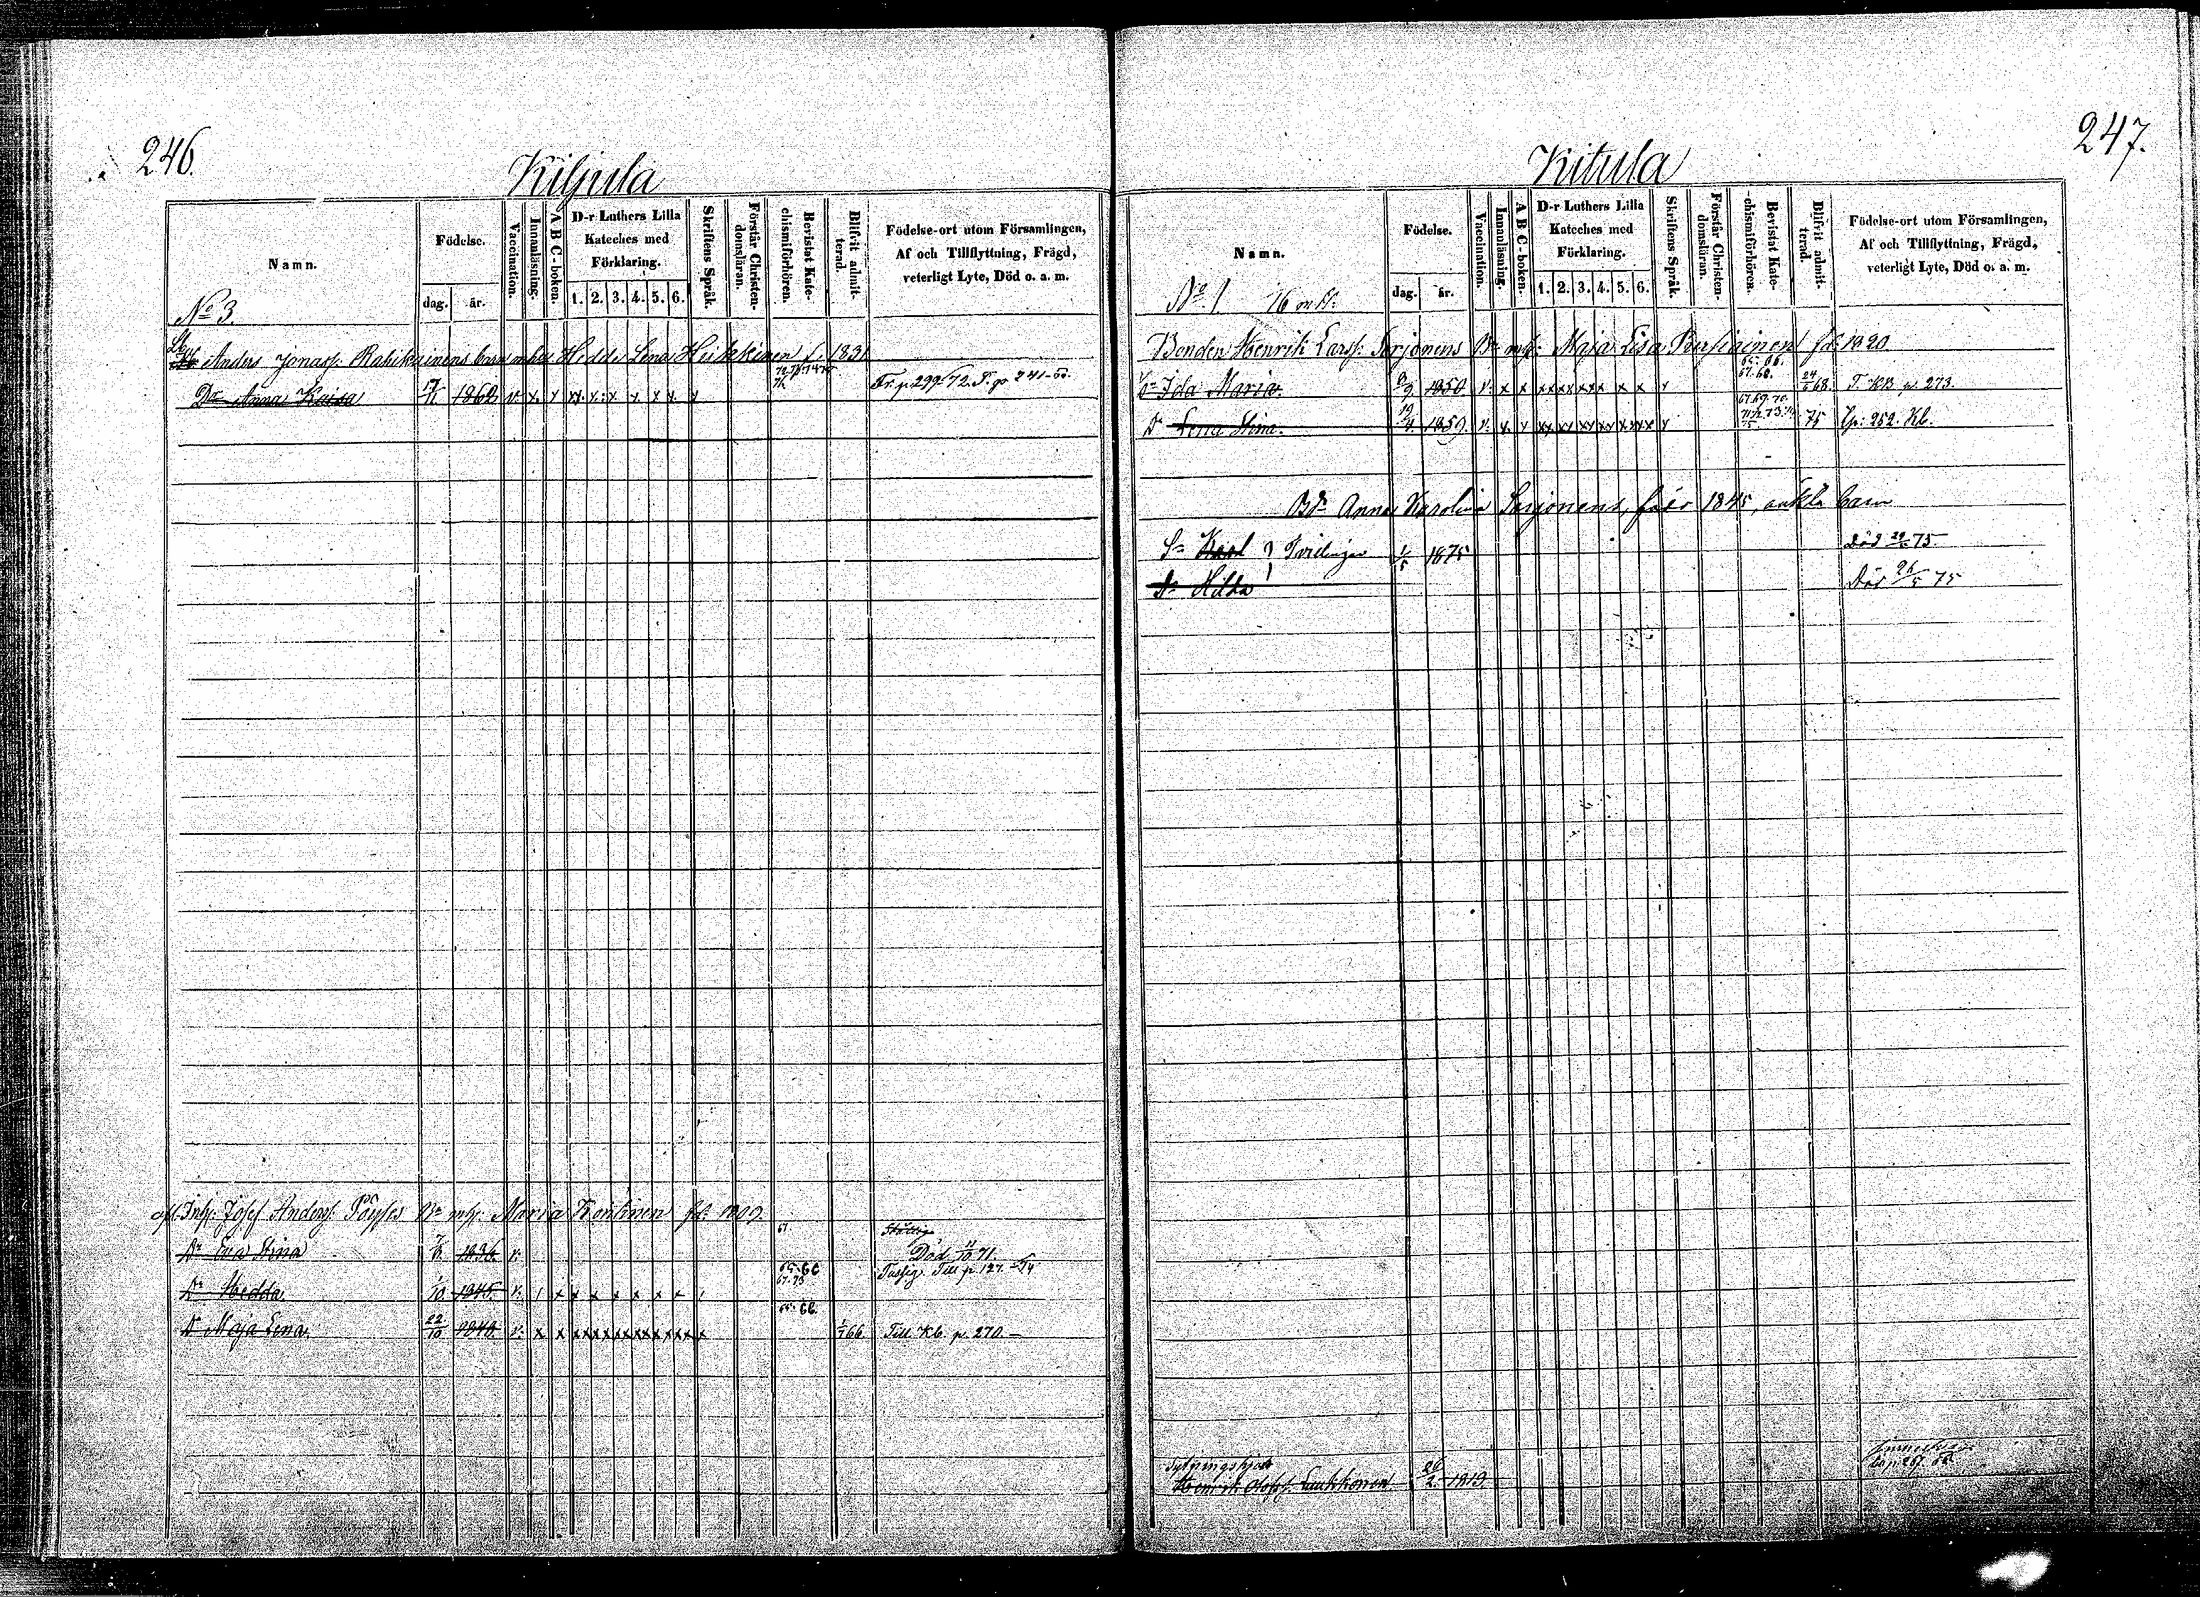 246.
Kiljula
Namn.
Födelse.
dag. år.
Vaccination.
Innanläsning.
A B C-boken.
D-r Luthers Lilla
Kateches med
Förklaring.
1. 2. 3. 4. 5. 6.
Skriftens Språk.
Förstår Christen-
domsläran.
Bevistat Kate-
chismiförhören.
Blifvit admit-
terad.
Födelse-ort utom Församlingen,
Af och Tillflyttning, Frägd,
veterligt Lyte, Död o. a. m.
No 3.
Anders Jonass. Rahikainens barn m hu Hedda Lena Heikkinen f. 1831
Dr Anna Kaisa 1862 v. x x xx x x x x x x Fr. p. 299-72. T. p. 241
Inh. Josef Anders. Pöyhös Bn mh. Maria Könönen fd. 1809.
67
Dr Eva Stina 1836. v. Död 11/10 71.
65. 66
67. 73
Dr Hedda 1/10 1845. v. Till p. 127.
65. 66.
Dr Maja Lena 22/10 1848. v. x x xxxxxxxxxxxx x 66 Till Kb. p. 270
247.
Kitula
Namn.
Födelse.
dag. år.
Vaccination.
Innanläsning.
A B C-boken.
D-r Luthers Lilla
Kateches med
Förklaring.
1. 2. 3. 4. 5. 6.
Skriftens Språk.
Förstår Christen-
domsläran.
Bevistat Kate-
chismiförhören.
Blifvit admit-
terad.
Födelse-ort utom Församlingen,
Af och Tillflyttning, Frägd,
veterligt Lyte, Död o. a. m.
No 1.
Bonden Henrik Larss. Sorjonens Bn mh: Maja Lisa Pursiainen fd: 1820
65. 66.
67. 68.
Dr Ida Maria. 1850. v. x x xx xx xx x x x 24/5 68. T. KB p. 273.
67. 69. 70.
Dr Lena Stina. 19/4 1859. v. x. x xx xx xx xx xx xx x 75 Cp: 252. Kb.
Bdr Anna Karolina Sorjonens, född 1845, oäkta barn
Sn Karl } Tvillingar 1/5 1875 Död 29/5 75.
Dr Hilda Död 26/5 75
Sytningshjon
Henrik Olofss. Laukkonen 26/2 1819